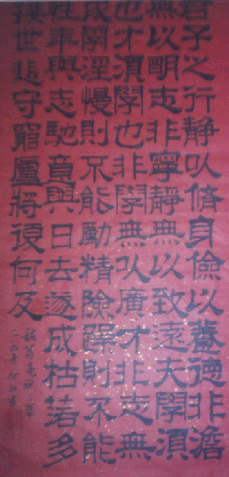 君子之行靜以脩身儉以養德非澹
無以明志非寧靜無以致遠夫學須
也才須學也非學無以廣才非志無
成學淫慢則不能勵精險躁則不能
性年與志馳意與日去遂成枯若多
接世悲守窮廬將復何及